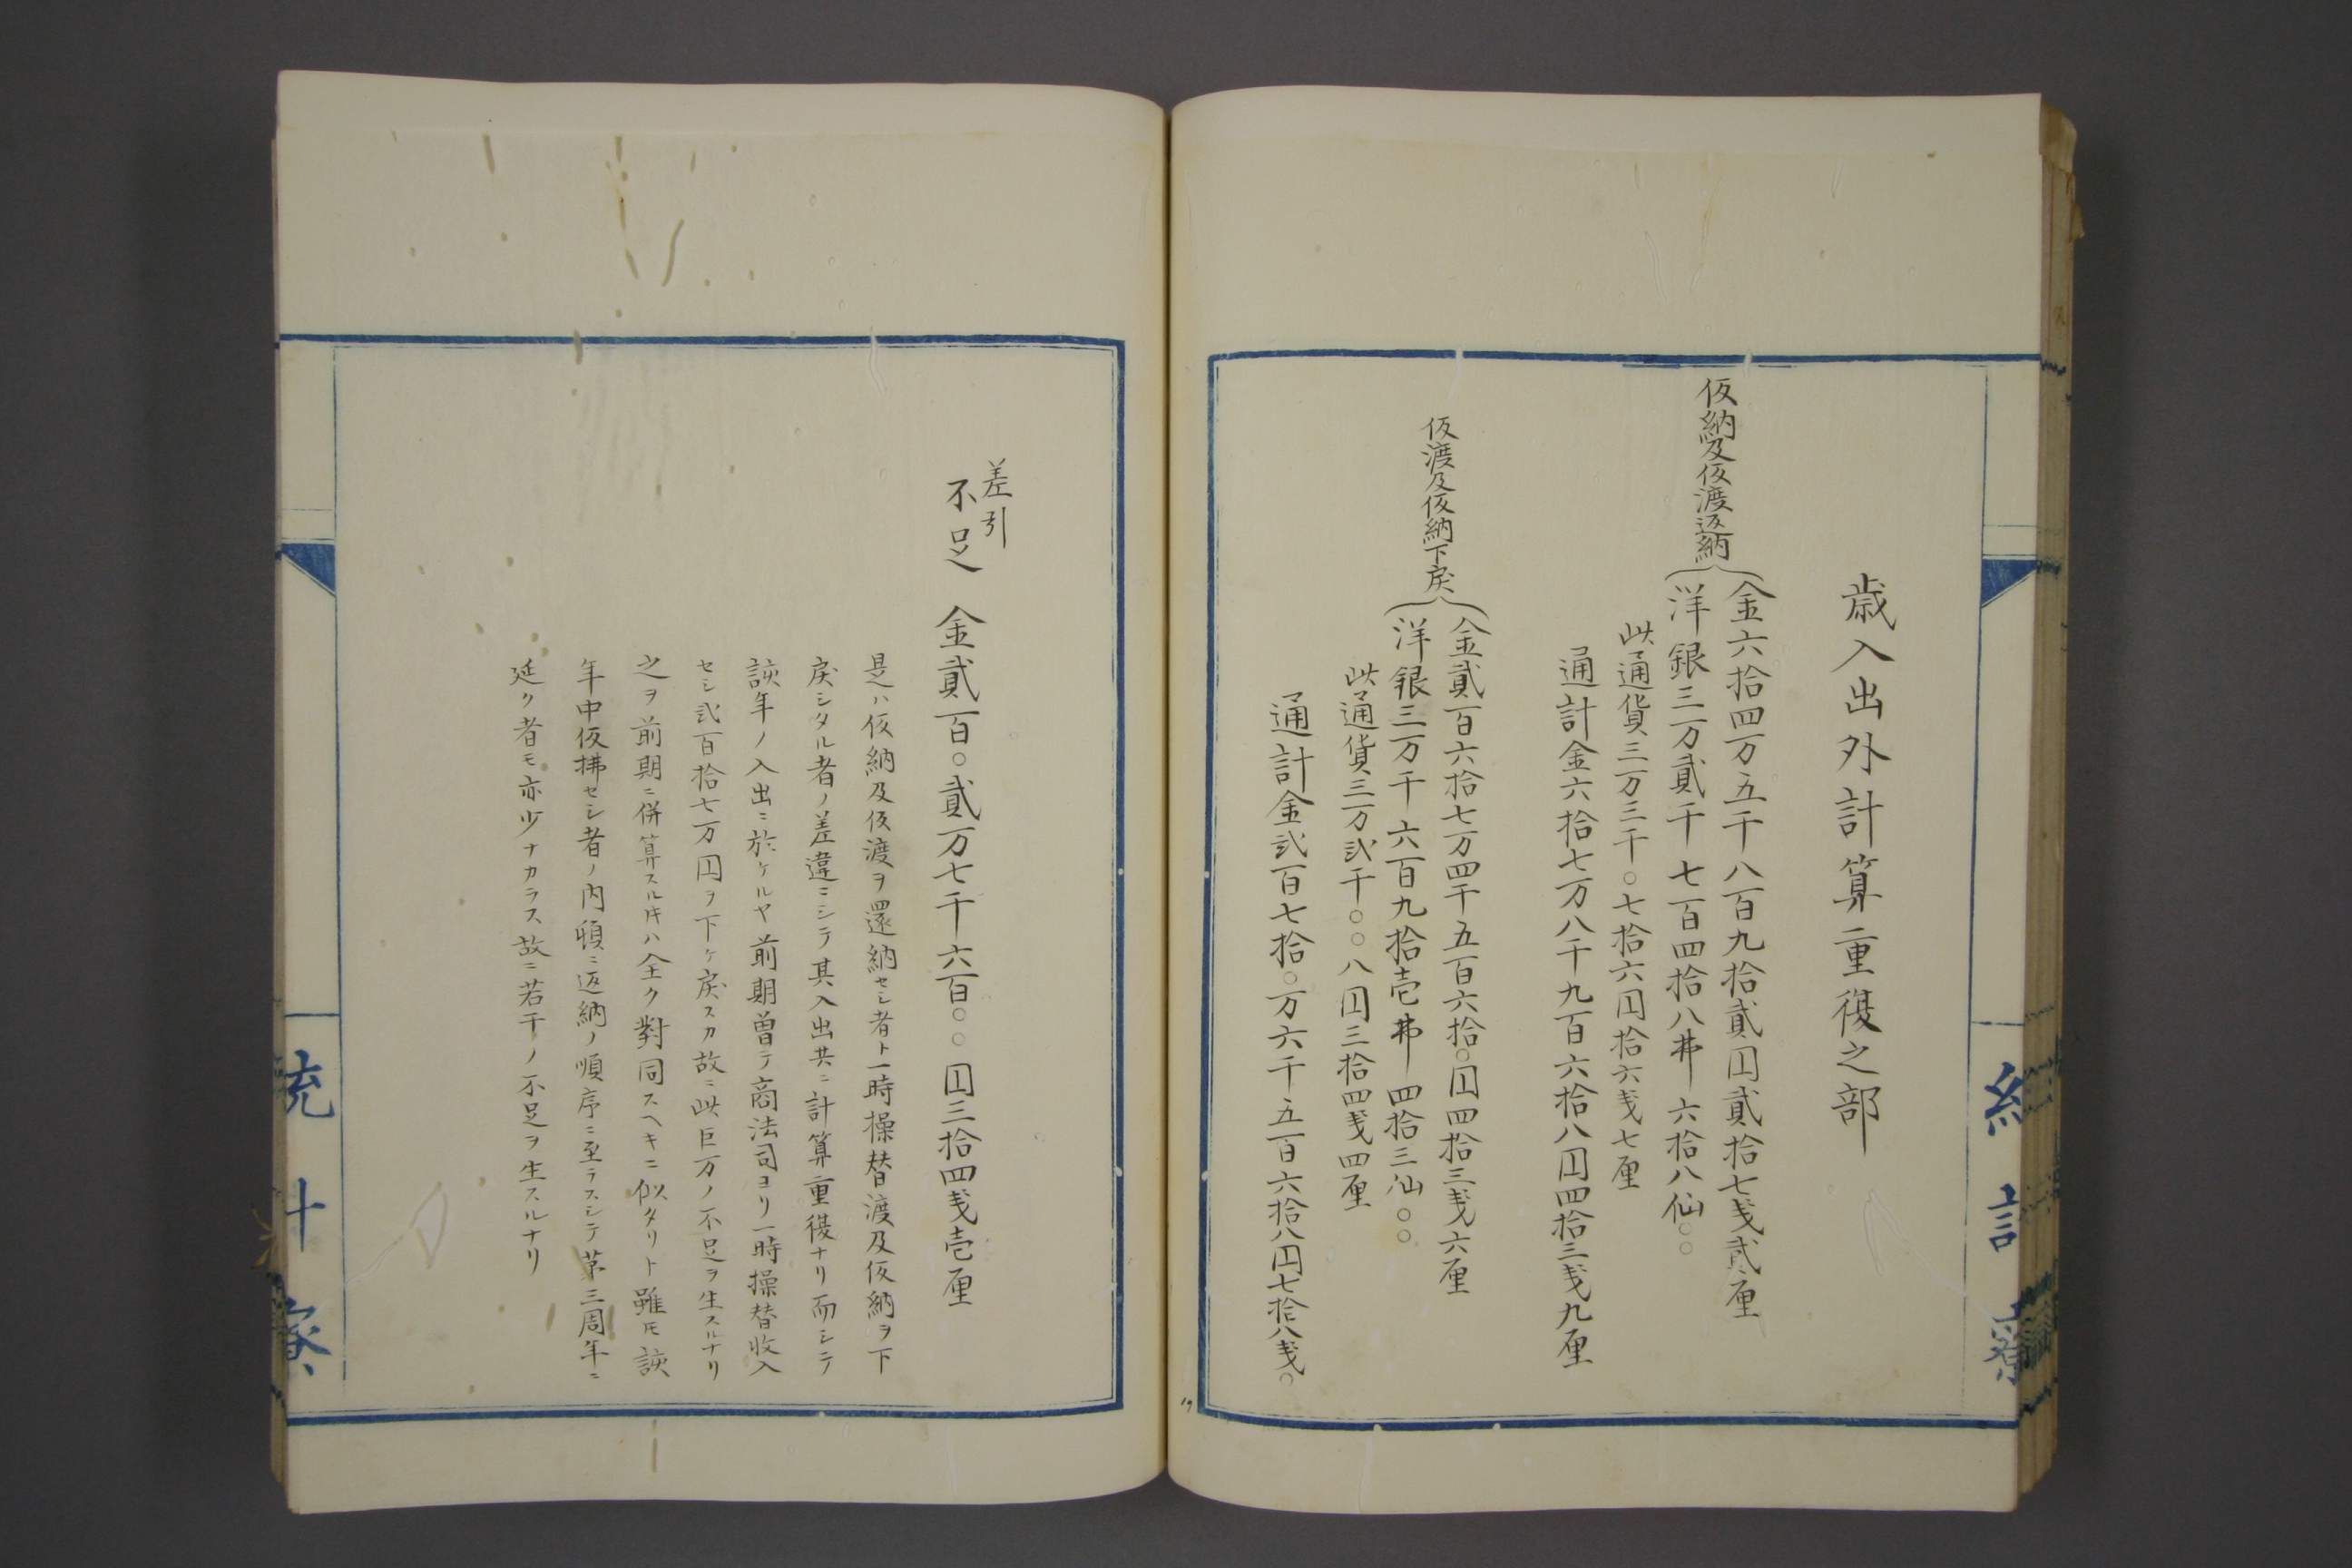 歳入出外計算重復之部
仮納及仮渡返納
金六拾四万五千八百九拾貳円貳拾七戔貳厘
洋銀三万貳千七百四拾八弗六拾八仙〇〇
此通貨三万三千〇七拾六円拾六戔七厘
通計金六拾七万八千九百六拾八円四拾三戔九厘
仮渡及仮納下戻
金貳百六拾七万四千五百六拾〇円四拾三戔六厘
洋銀三万千六百九拾壱弗四拾三仙〇〇
此通貨三万弐千〇〇八円三拾四戔四厘
通計金弐百七拾〇万六千五百六拾八円七拾八戔〇
差引
不足 金貳百〇貳万七千六百〇〇円三拾四戔壱厘
是ハ仮納及仮渡ヲ還納セシ者ト一時操替渡及仮納ヲ下
戻シタル者ノ差違ニシテ其入出共ニ計算重復ナリ而シテ
該年ノ入出ニ於ケルヤ前期曽テ商法司ヨリ一時操替收入
セシ弐百拾七万円ヲ下ケ戻スカ故ニ此巨万ノ不足ヲ生スルナリ
之ヲ前期ニ併算スル𪜈ハ全ク對同スヘキニ似タリト雖𪜈該
年中仮拂セシ者ノ内頓ニ返納ノ順序ニ至ラスシテ第三周年ニ
延ク者モ亦少ナカラス故ニ若干ノ不足ヲ生スルナリ
統計寮